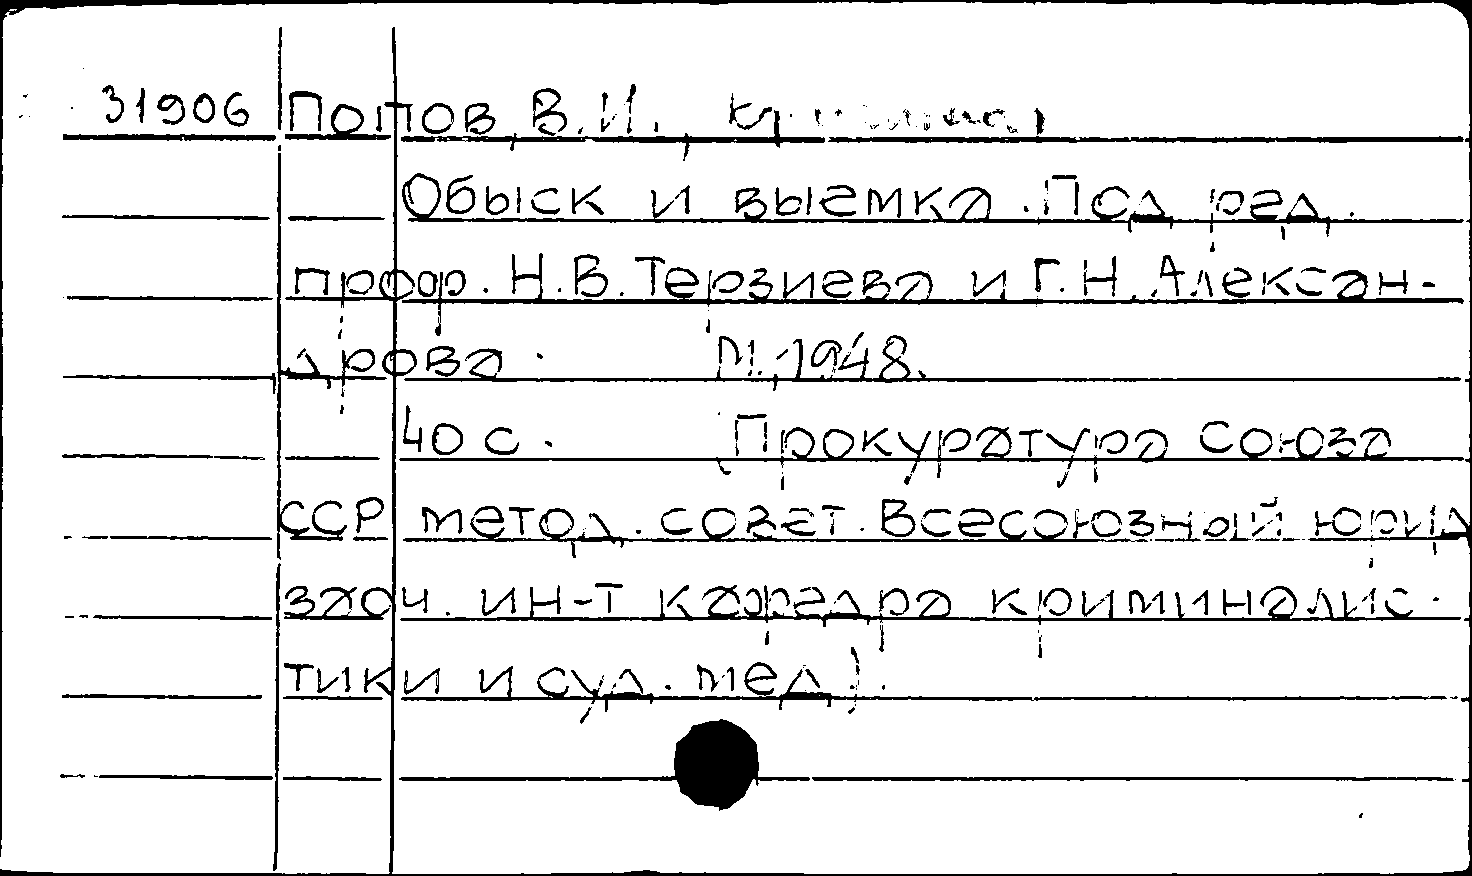 31906 Попов, В.И.,
Обыск и выемка. Под ред.
проф. Н.В. Терзиева и Г.Н. Алексан-
дрова. М., 1948.
40 с. (Прокуратура Союза
ССР метод. совет. Всесоюзный юрид
заоч. ин-т кафедра криминалис-
тики и суд. мед).